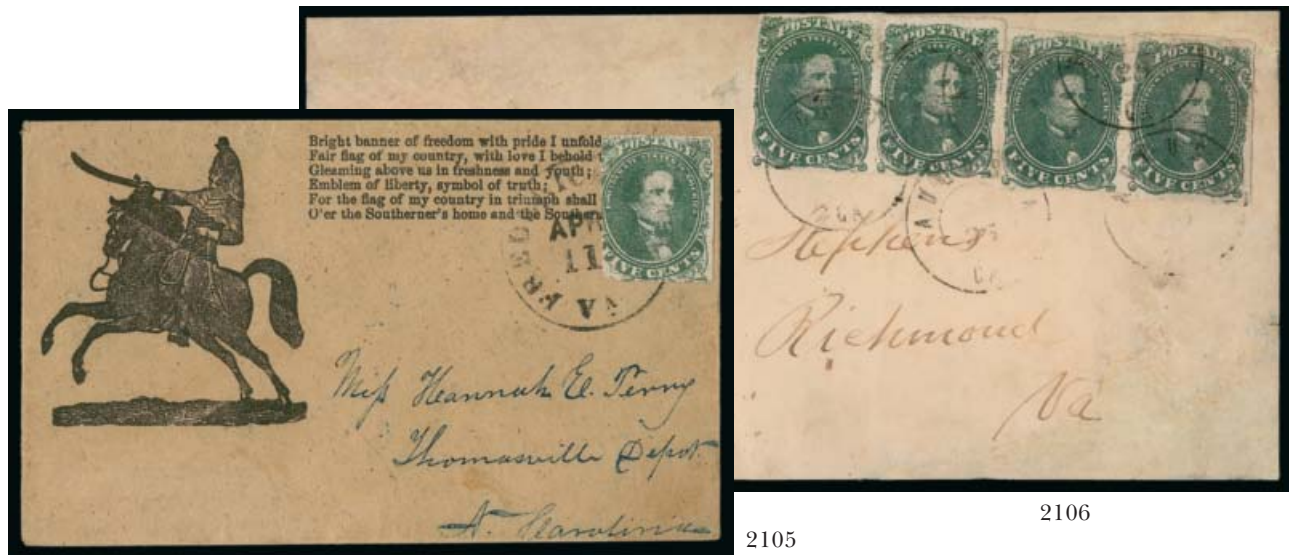 Bright banner of freedom with pride I unfold
Fair flag of my country, with love I behold
Gleaming above us in freshness and youth;
Emblem of liberty, symbol of truth;
For the flag of my country in triumph shall
O'er the Southerner's home and the Southern
FIVE CENTS
VA
APR
11
Miss Hannah E. Perry
Thomasville Depot
N. Carolina
2105
POSTAGE
POSTAGE
POSTAGE
POSTAGE
FIVE CENTS
FIVE CENTS
FIVE CENTS
FIVE CENTS
GA
Stephens
Richmond
Va
2106